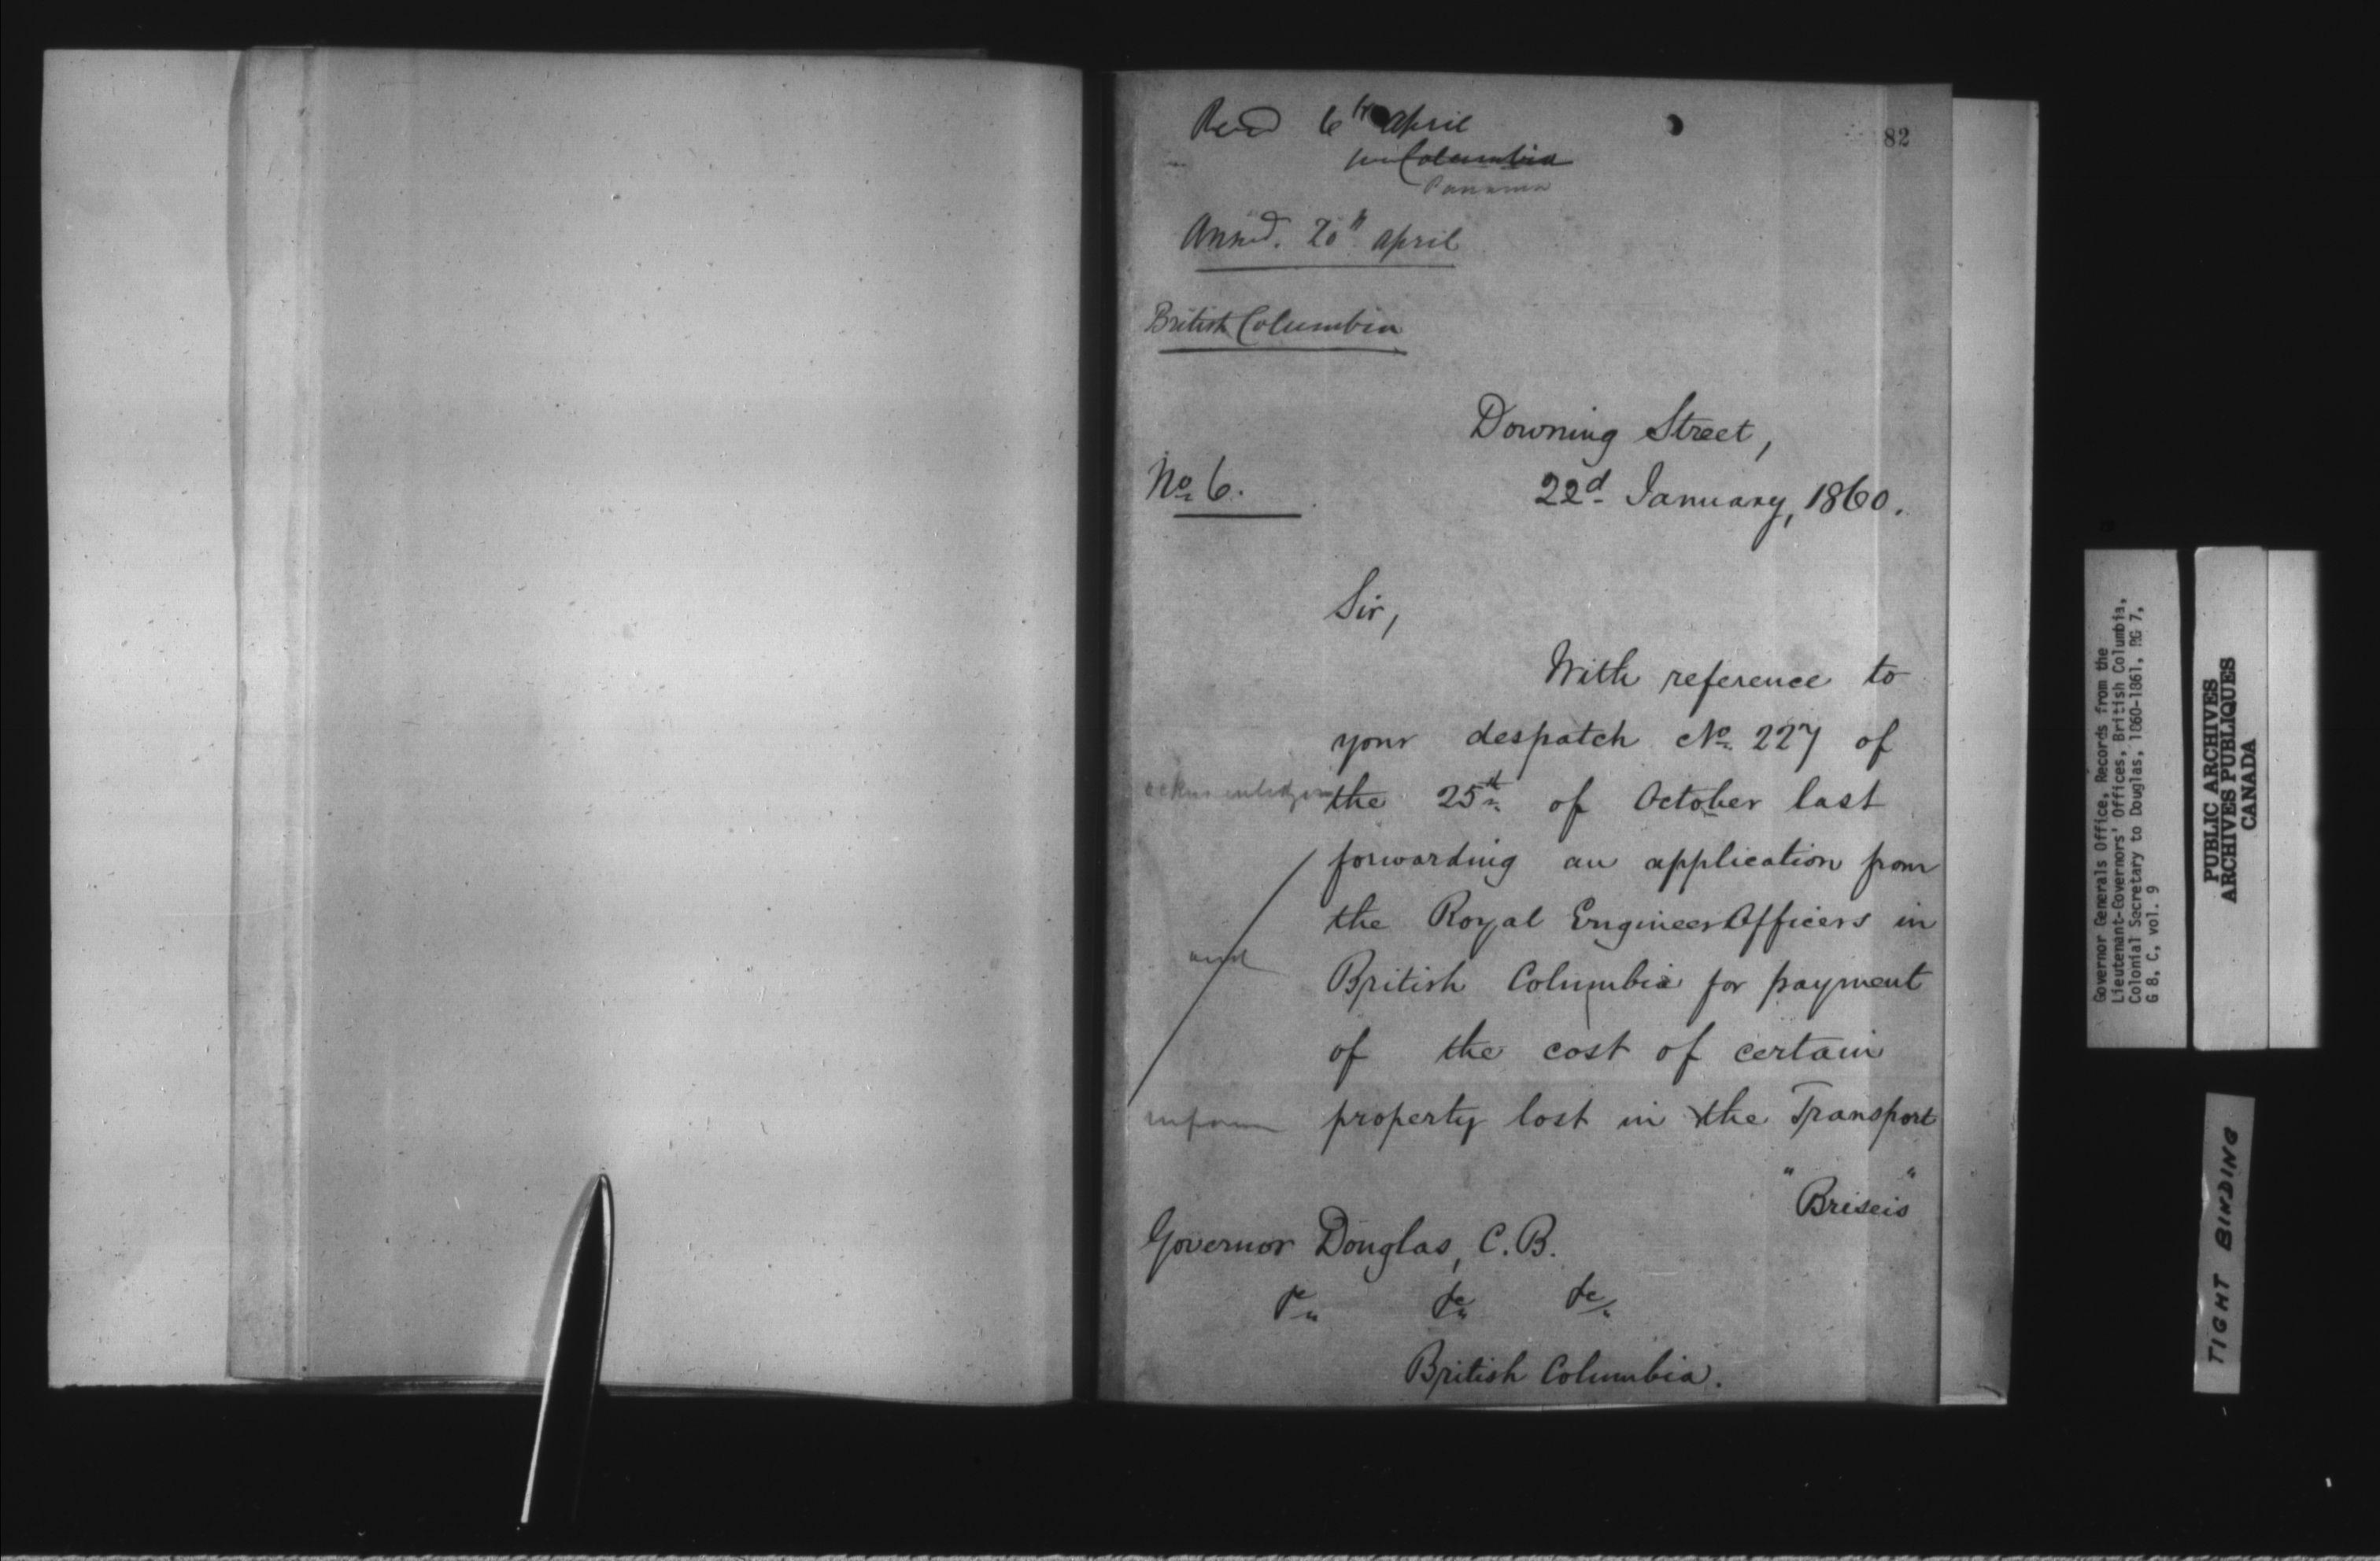 82
Recd 6th April
per Columbia
Panama
Answd. 20th April
British Columbia
Downing Street,
No 6.
22d January, 1860.
Sir,
With reference to
your despatch No. 227 of
the 25th of October last
forwarding an application from
the Royal Engineer Officers in
and
British Columbia for payment
of the cost of certain
inform
property lost in the Transport
"Briseis"
Governor Douglas, C.B.
&c &c &c
British Columbia.
Governor Generals Office, Records from the
Lieutenant-Governors' Offices, British Columbia,
Colonial Secretary to Douglas, 1860-1861, RG 7,
G 8, C, vol. 9
PUBLIC ARCHIVES
ARCHIVES PUBLIQUES
CANADA
TIGHT BINDING